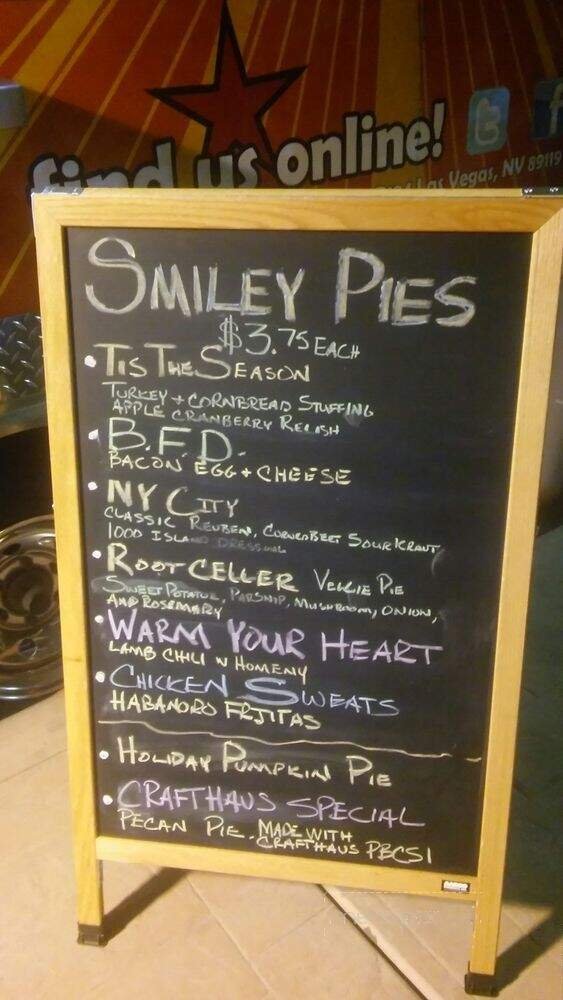 find us online!
Las Vegas, NV 89119
SMILEY PIES
$3.75 EACH
• TIS THE SEASON
TURKEY + CORNBREAD STUFFING
APPLE CRANBERRY RELISH
• B.F.D.
BACON EGG + CHEESE
• NY CITY
CLASSIC REUBEN, CORNED BEEF SOUR KRAUT
1000 ISLAND DRESSING
• ROOT CELLER VEGGIE PIE
SWEET POTATOE, PARSNIP, MUSHROOM, ONION,
AND ROSEMARY
• WARM YOUR HEART
LAMB CHILI W HOMENY
• CHICKEN SWEATS
HABANORO FAJITAS
• HOLIDAY PUMPKIN PIE
• CRAFTHAUS SPECIAL
PECAN PIE. MADE WITH
CRAFTHAUS PBCSI